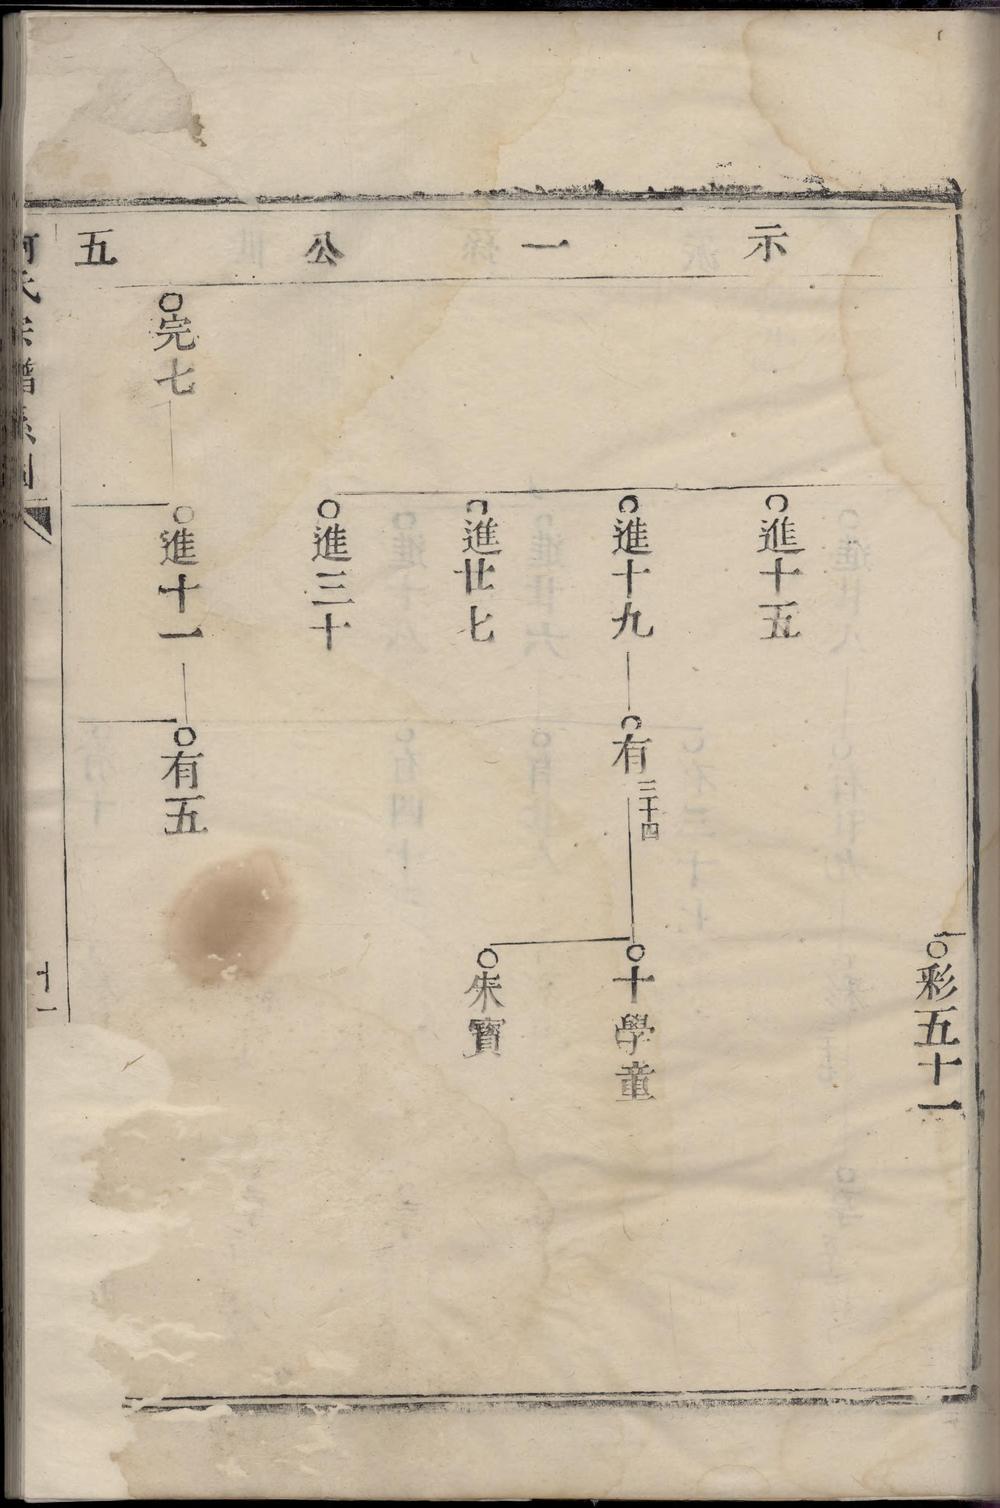 示一公五
彩五十一
進十五
進十九
有三十四
十學童
朱寶
進廿七
進三十
完七
進十一
有五
何氏宗譜系圖
十一